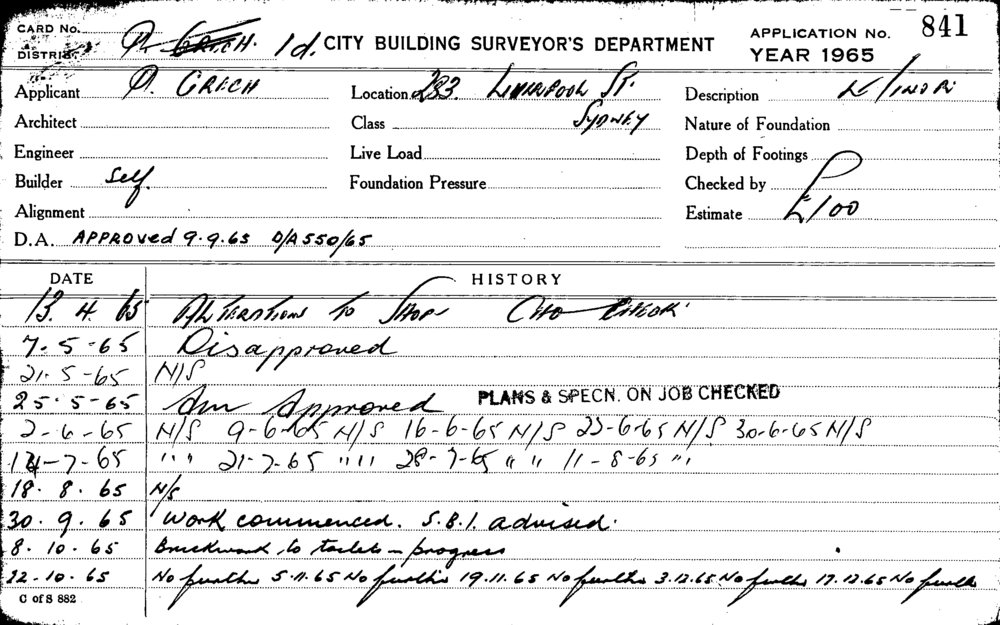 CARD No.
DISTRICT 1d. CITY BUILDING SURVEYOR'S DEPARTMENT
APPLICATION No. 841
YEAR 1965
Applicant P. GRECH Location 283. LIVERPOOL ST. Description
Architect Class SYDNEY Nature of Foundation
Engineer Live Load Depth of Footings
Builder Self. Foundation Pressure Checked by
Alignment Estimate £100
D.A. APPROVED 9.9.65 D/A 550/65
DATE HISTORY
13. 4. 65 ALTERATIONS to SHOP
7. 5 - 65 Disapproved
21. 5 - 65 N/S
25. 5 - 65 Am Approved PLANS & SPECN. ON JOB CHECKED
2 - 6 - 65 N/S 9-6-65 N/S 16-6-65 N/S 23-6-65 N/S 30-6-65 N/S
14-7-65 " " " 21-7-65 " " " 28-7-65 " " 11-8-65 " "
18. 8. 65 N/S
30. 9. 65 Work commenced. S.B.I. advised.
8. 10. 65 Brickwork to toilets in progress
22-10-65 No further 5.11.65 No further 19.11.65 No further 3.12.65 No further 17.12.65 No further
C of S 882